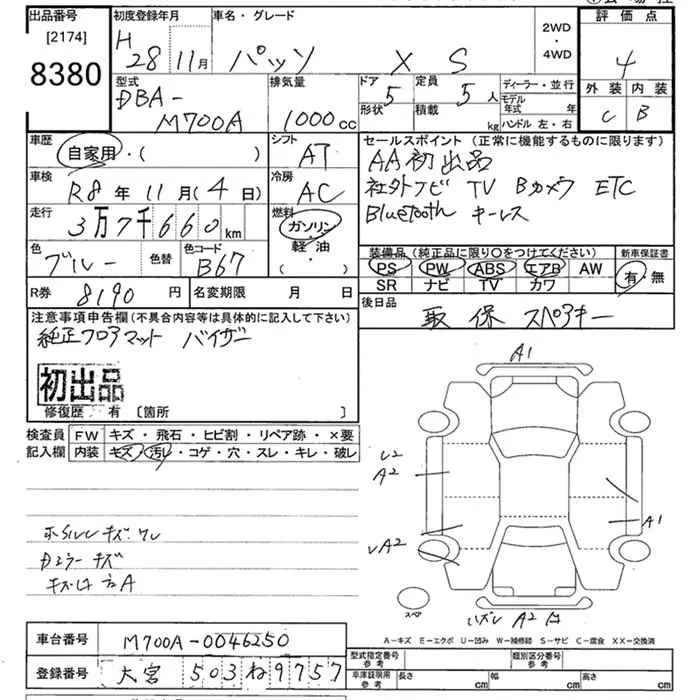 出品番号 初度登録年月 車名・グレード 2WD・4WD 評価点
[2174]
8380
H 28年 11月 パッソ X S 4
外装 内装
C B
型式 排気量 ドア 定員 ディーラー・並行
DBA-
M700A 1000cc 形状 5 積載 5人 kg モデル年式 年
ハンドル 左・右
車歴 シフト セールスポイント(正常に機能するものに限ります)
自家用・( ) AT AA初出品
車検 冷房 社外ナビ TV Bカメラ ETC
R8年 11月(4日) AC Bluetooth キーレス
走行 燃料
3万7千660km ガソリン・軽油・( )
色 色替 色コード 装備品(純正品に限り○をつけてください) 新車保証書
ブルー B67 PS PW ABS エアB AW 有・無
SR ナビ TV カワ
R券 8190円 名変期限 月 日 後日品
取 保 スペアキー
注意事項申告欄(不具合内容等は具体的に記入して下さい)
純正フロアマット バイザー
初出品
修復歴 有 [箇所 ]
検査員 FW キズ・飛石・ヒビ割・リペア跡・×要
記入欄 内装 キズ・汚レ・コゲ・穴・スレ・キレ・破レ
A1
A2
A1
A2
キズ
Dミラーキズ
スペア
A2
A-キズ E-エクボ U-凹み W-補修跡 S-サビ C-腐食 XX-交換済
車台番号 M700A-0046250
型式指定番号 参考 類別区分番号 参考
登録番号 大宮 503 ね 9757
車庫証明用 参考 長さ cm 幅 cm 高さ cm